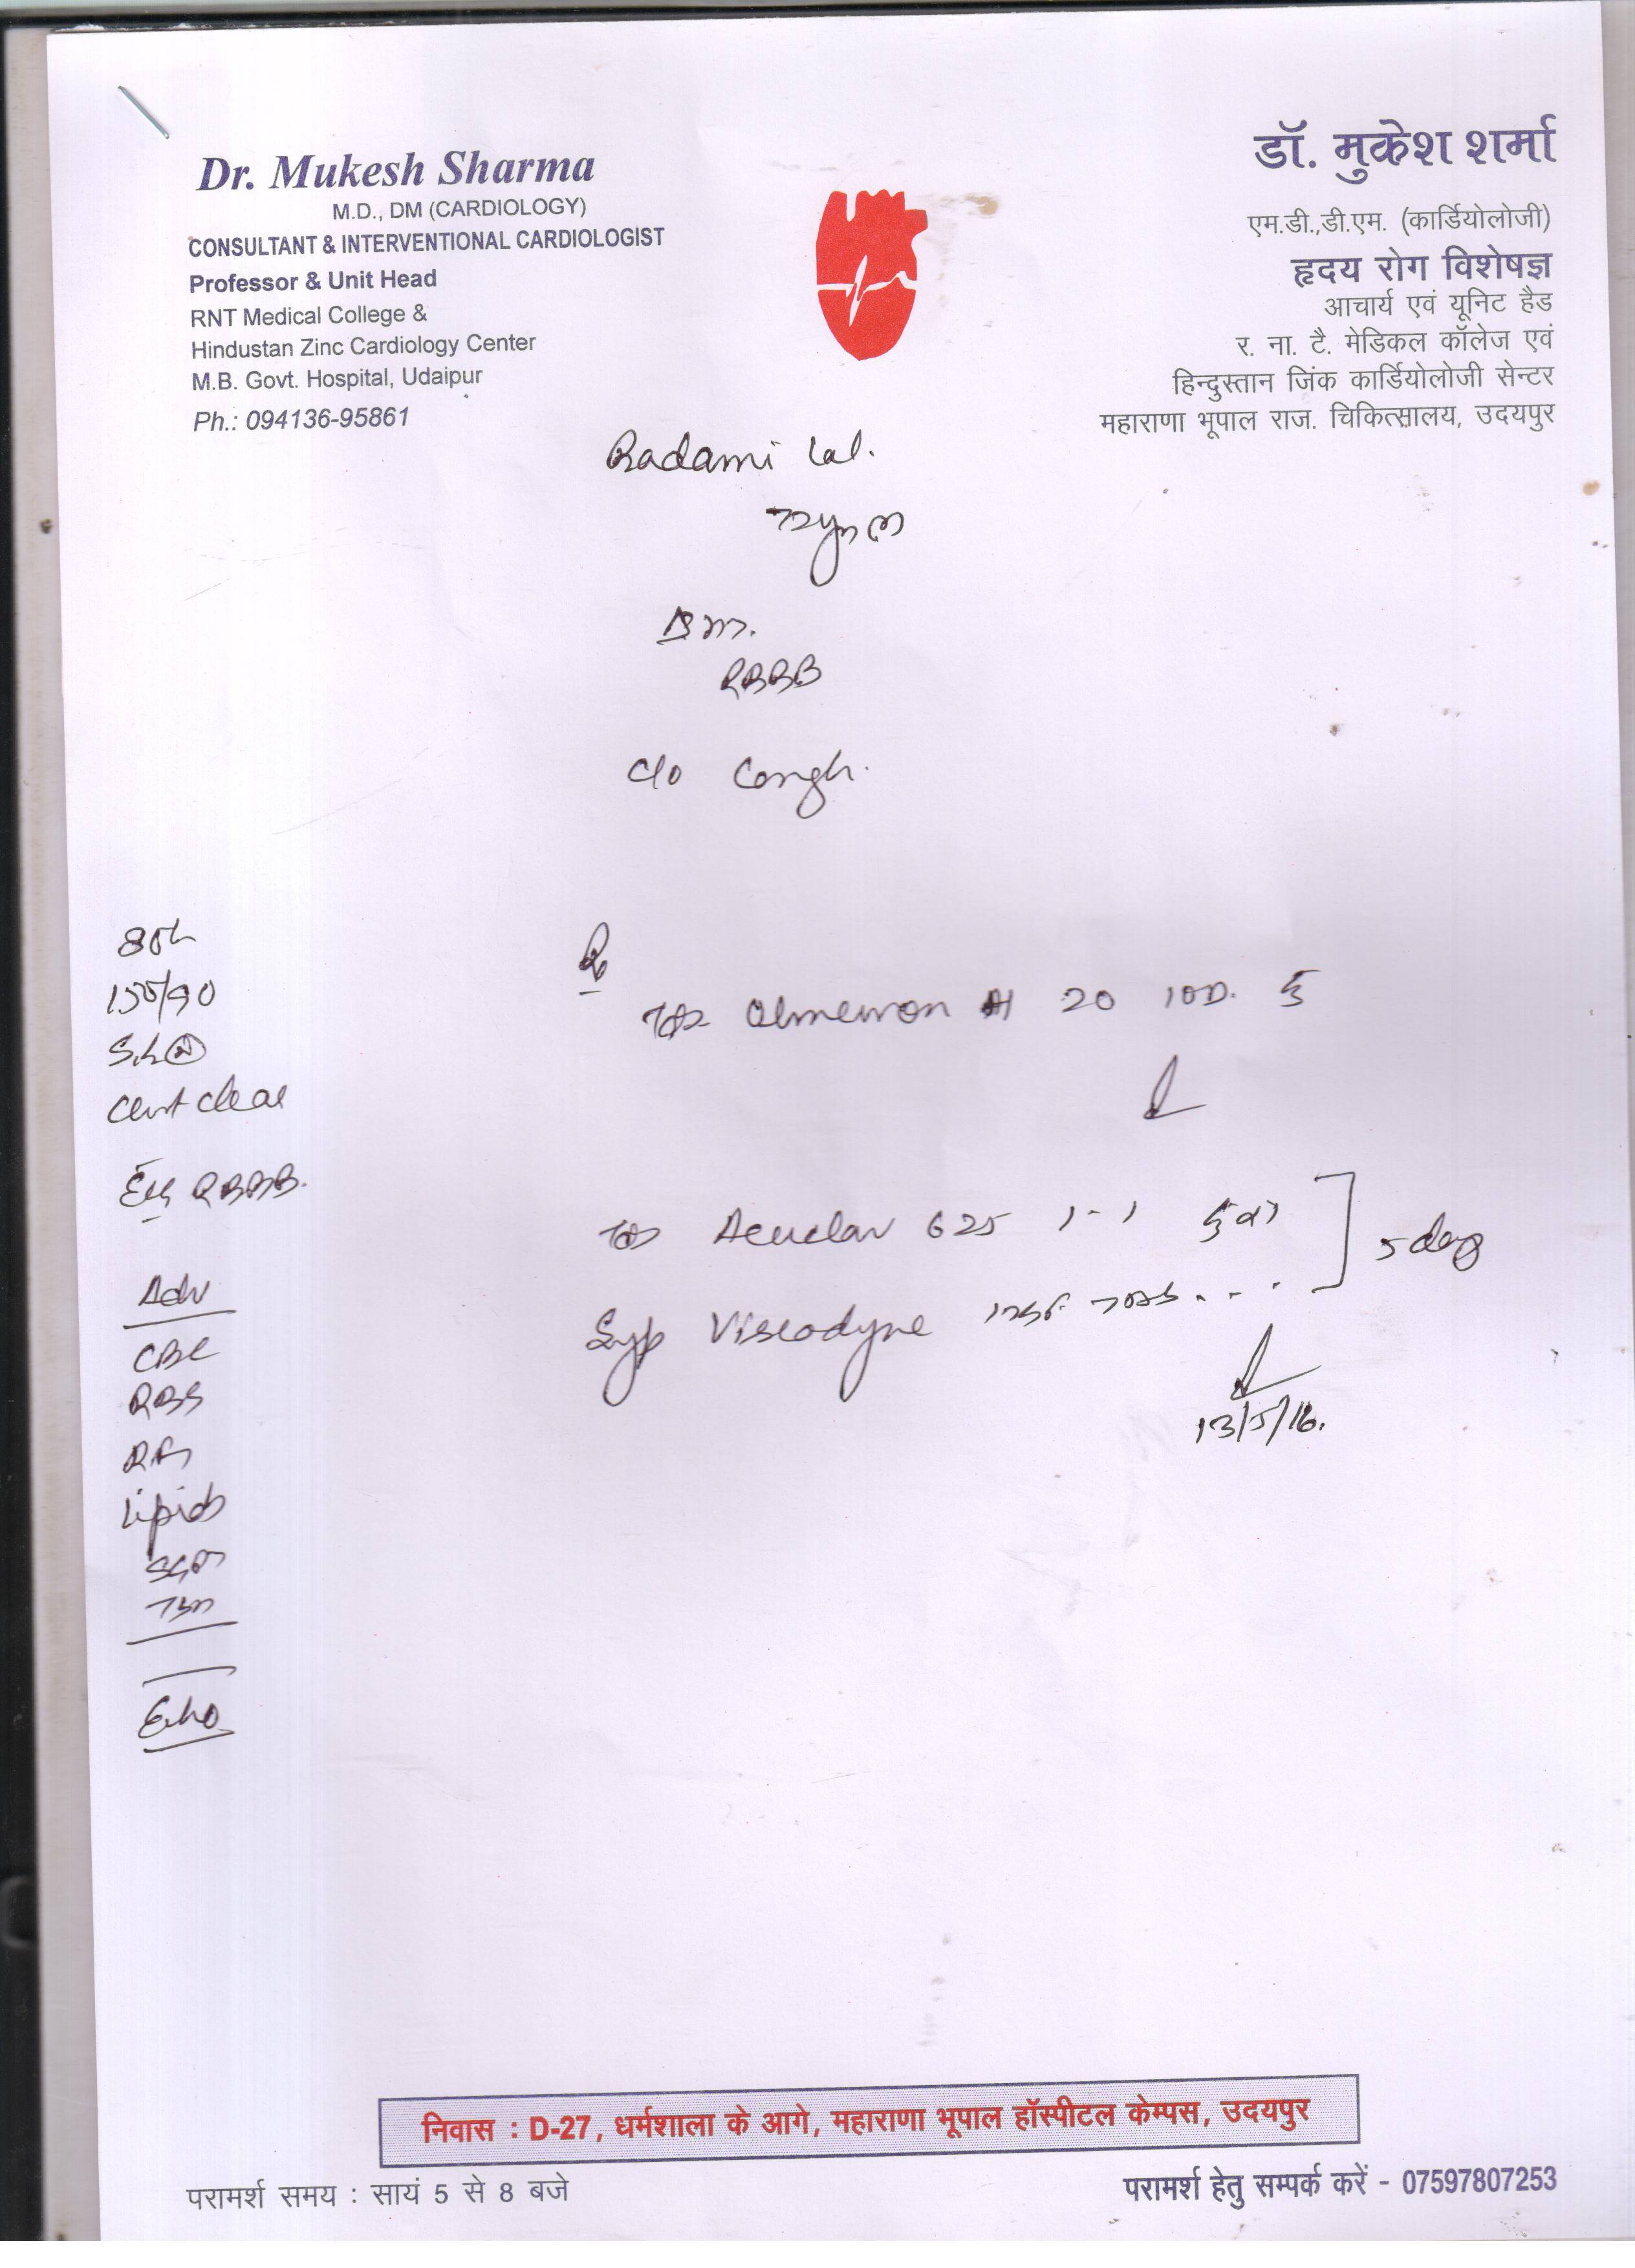 Dr. Mukesh Sharma
M.D., DM (CARDIOLOGY)
CONSULTANT & INTERVENTIONAL CARDIOLOGIST
Professor & Unit Head
RNT Medical College &
Hindustan Zinc Cardiology Center
M.B. Govt. Hospital, Udaipur
Ph.: 094136-95861
डॉ. मुकेश शर्मा
एम.डी.,डी.एम. (कार्डियोलोजी)
हृदय रोग विशेषज्ञ
आचार्य एवं यूनिट हैड
र. ना. टै. मेडिकल कॉलेज एवं
हिन्दुस्तान जिंक कार्डियोलोजी सेन्टर
महाराणा भूपाल राज. चिकित्सालय, उदयपुर
Badami Lal.
RBBB
c/o Cough.
Chest clear
RBBB.
Adv
CBC
RBS
Lipids
Echo
Rx
Tab 20
Tab Acuclav 625 1-1
Syp Viscodyne
5 days
13/5/16.
निवास : D-27, धर्मशाला के आगे, महाराणा भूपाल हॉस्पीटल केम्पस, उदयपुर
परामर्श समय : सायं 5 से 8 बजे
परामर्श हेतु सम्पर्क करें - 07597807253